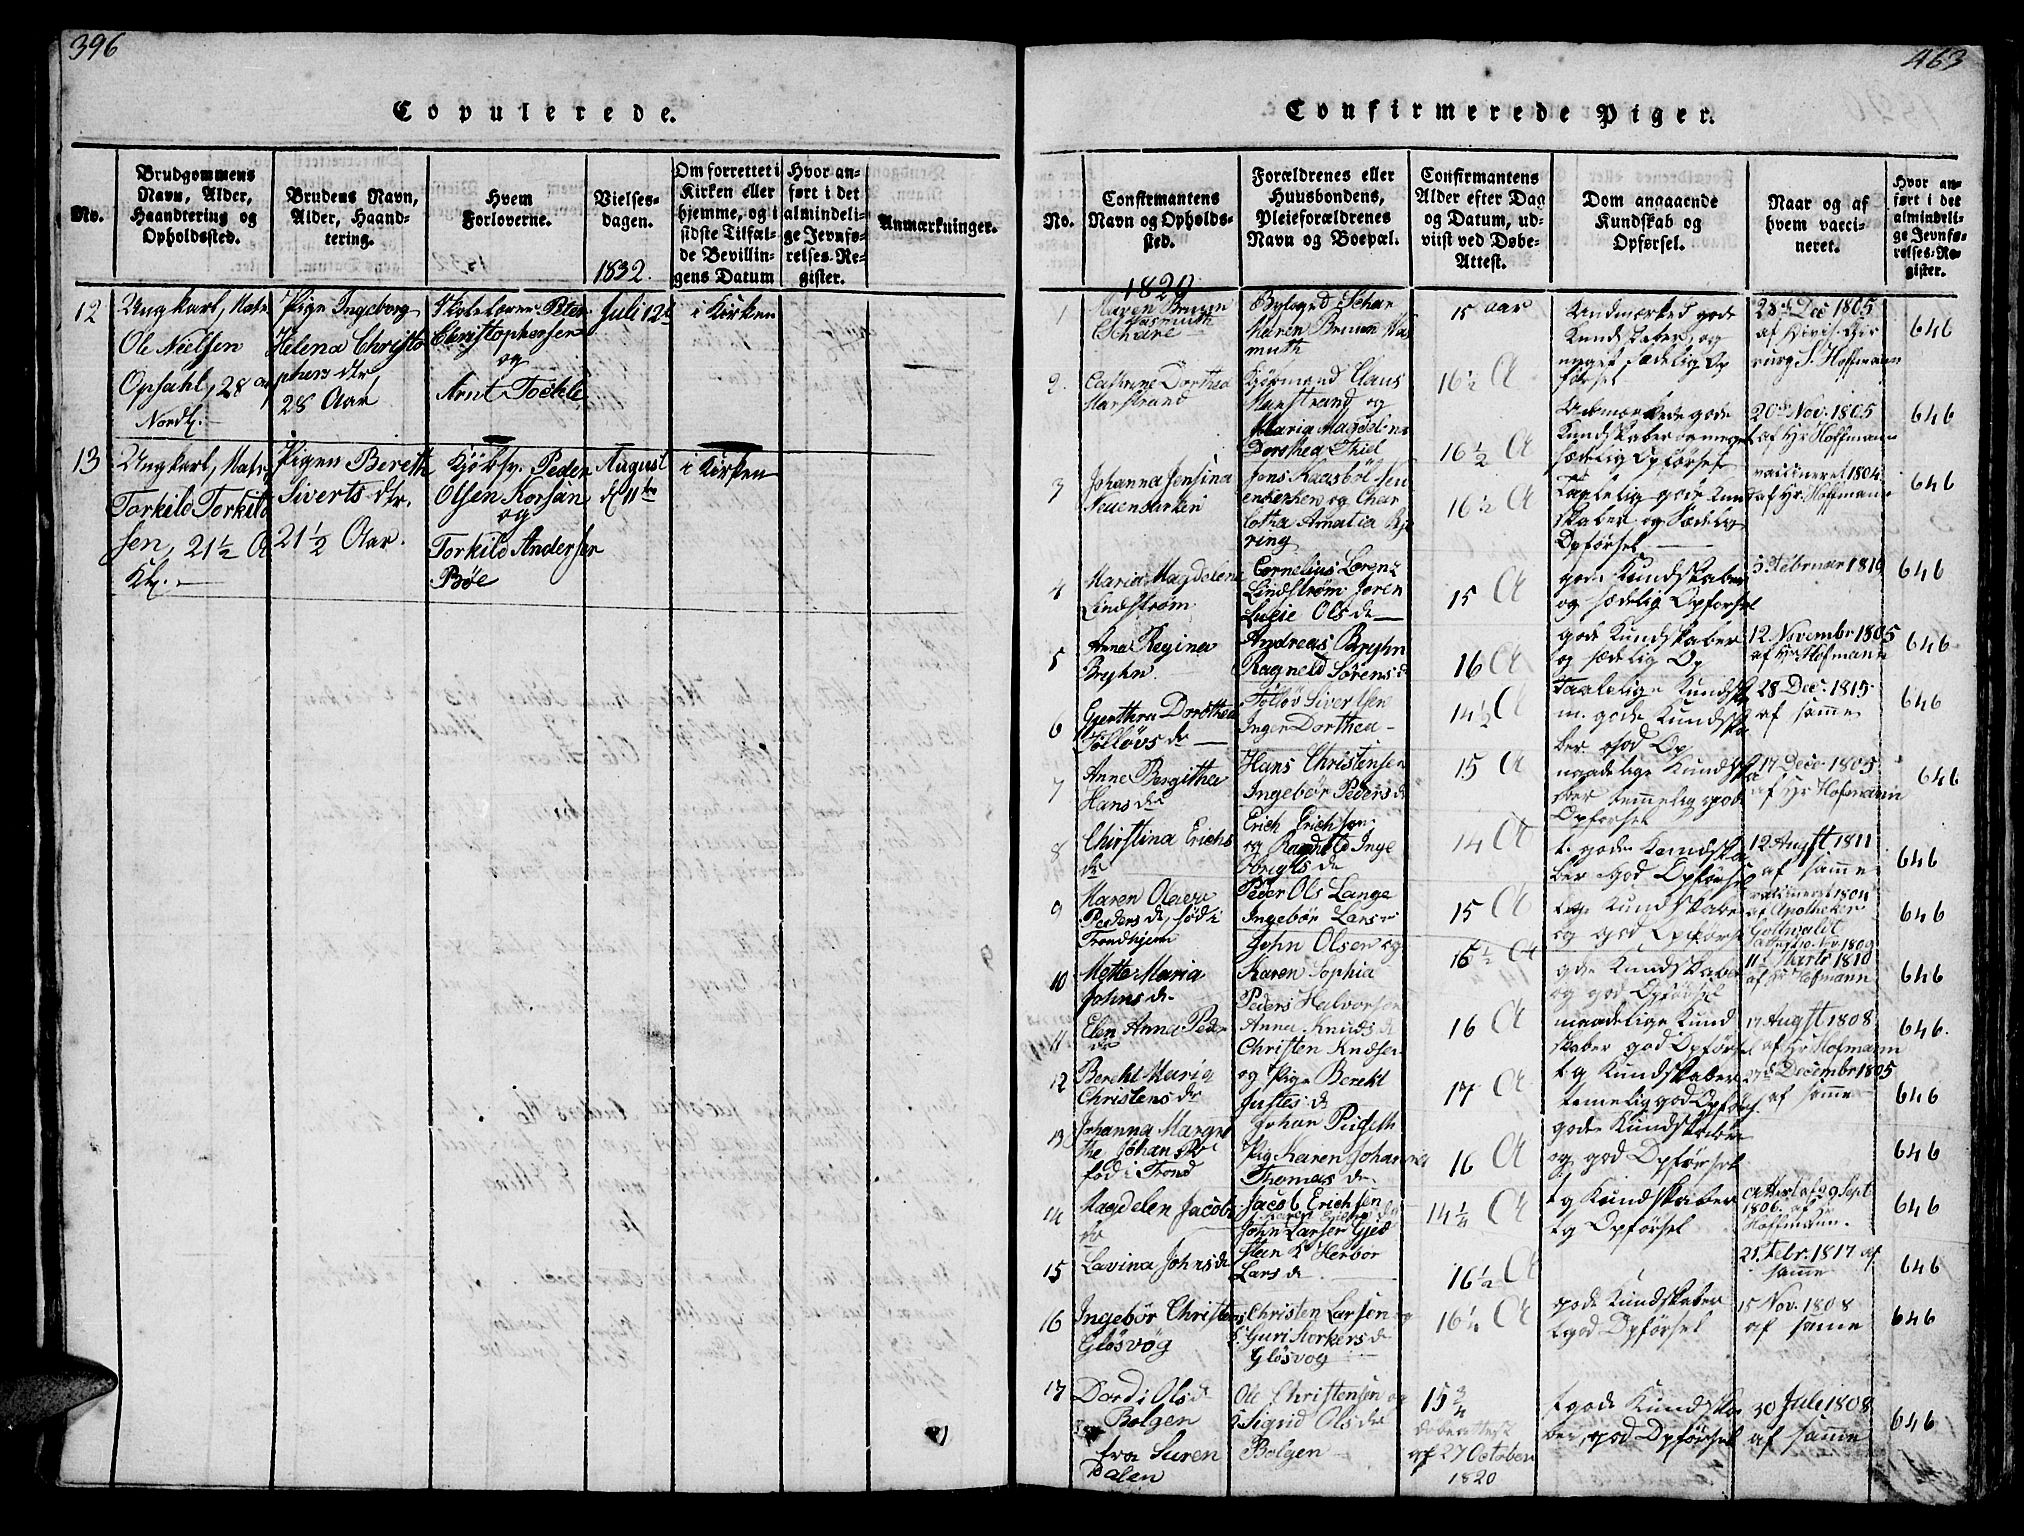 396
Copulerede.
No.
Brudgommens
Navn, Alder,
Haandtering og
Opholdssted.
Brudens Navn,
Alder, Haand-
tering.
Hvem
Forloverne.
Vielses-
dagen.
1832.
Om forrettet i
Kirken eller
hjemme, og i
sidste Tilfæl-
de Bevillin-
gens Datum
Hvor an-
ført i det
almindeli-
ge Jevnfø-
relses-Re-
gister.
Anmærkninger.
12
Ungkarl, Matr
Ole Nielsen
Opsahl, 28 Aar
Nordl.
Pige Ingeborg
Helena Christo
phers dtr
28 Aar
Peter
Christophersen
og
Arnt
Juli 12
i Kirken
13
Ungkarl, Matr
Torkild Torkild
sen, 21½ A
Kl.
Pigen Bereth
Siverts dtr.
21½ Aar.
Kjøbsv. Peder
Olsen
og
Torkild Andersen
Bøe
August
d 11te
i Kirken
463
Confirmerede Piger.
No.
Confirmantens
Navn og Opholds-
sted.
1820
Forældrenes eller
Huusbondens,
Pleieforældrenes
Navn og Boepæl.
Confirmantens
Alder efter Dag
og Datum, ud-
viist ved Døbe-
Attest.
Dom angaaende
Kundskab og
Opførsel.
Naar og af
hvem vacci-
neret.
Hvor an-
ført i det
almindeli-
ge Jevnfø-
relses-Re-
gister.
1
Maren Bruun
Wasmuth
Byfogd
Maren Bruun Was
muth
15 aar
Udmærked gode
Kundskaber, og
meget sædelig Op
førsel
28 Dec 1805
S. Hoffmann
646
2.
Cathrine Dorthea
Marstrand
Kjøbmand Claus
Marstrand og
Maria Magdelena
Dorothea Thiel
16½ A
Udmærkede gode
Kundskaber og meget
sædelig Opførsel
20 Nov. 1805
af Hr Hoffmann
646
3
Johanna Jensina
16½ A
Jens
og Char
lotha Amalia
ring
16½ A
Taalelig gode Kun
skaber og Sædelig
Opførsel
vaccineret 1804
af Hr. Hoffmann
646
4
Maria Magdelena
Lindstrøm
Cornelius Lorenz
Lindstrøm
Lucie Ols d
15 A
gode Kundskaber
og sædelig Opforsel
5 Februar 1819
646
5
Anna Regina
Bryhn
Andreas Bryhn
Ragneld Sørens d
16 A
gode Kundskaber
og sædelig Op
12 Novembr 1805
af Hr Hofmann
646
6
Dorothea
Tølløvs d
Tølløv Sivertsen
Inger Dorthea
14½ A
Taalelige Kundska
m. gode Kundska
ber god Op
28 Dec. 1815
af samme
646
7
Anne Bergitha
Hans d
Hans Christensen
Ingebør Peders d
15 A
maadelige Kundska
ber temmelig god
Opførsel
17 Decbr 1805
af Hr Hofmann
646
8
Chirstina Erichs
d
Erich Erichsen
og Ragnild Inge
brigts d
14 A
t. gode Kundska
ber god Opførsel
12 Augst 1811
af samme
646
9
Maren
Peders d, fød i
Trondhjem
Peder Ols Lange
Ingebør Lars
15 A
tg Kundskaber
og god Opførsel
vaccineret 1804
af Apotheker
646
10
Mette Maria
Johns d
John Olsen og
Karen Sophia
15½ A
gode Kundskaber
og god Opførsel
11 Marts 1810
af Hr Hofmann
646
11
Elen Anna Peder
d
Peders Halvorsen
Anna Knuds d
16 A
maadelige Kund
skaber god Opførsel
17 Augst 1808
af Hr Hofmann
646.
12
Berekt Maria
Christens d
Christen Knudsen
og Pige Berekt
Justes d
17 A
tg Kundskaber
temelig god Opførs
27 Decembr 1805
af samme
646
13
Johanna Margre
the Johans
fød i Trond
Johan
Pig Karen Johanna
Thomas d
16 A
gode Kundskaber
og god Opførsel
646
14
Magdelen Jacobs
d
Jacob Erichsen
14¼ A
tg Kundskaber
tg Opførsel
Attest af 29 Sept
1806. af Hr
Hoffmann.
646
15
Lavina Johns d
John Larsen
Lars d
16½ A
21. Febr. 1817 af
samme
646
16
Ingebør Christens
Gløsvog
Christen Larsen og
Guri Korkers d
Gløsvog
16½ A
gode Kundskaber
tgod Opførsel
15 Nov. 1808
af samme
646
17
Dordi Ols d
Bolgen
fra Suren
Dalen
Ole Christensen og
Sigrid Ols d
Bolgen
15¾
dobeattest
af 27 October
1820
tgode Kundska
ber, god Opførsel
30 Juli 1808
af samme
646